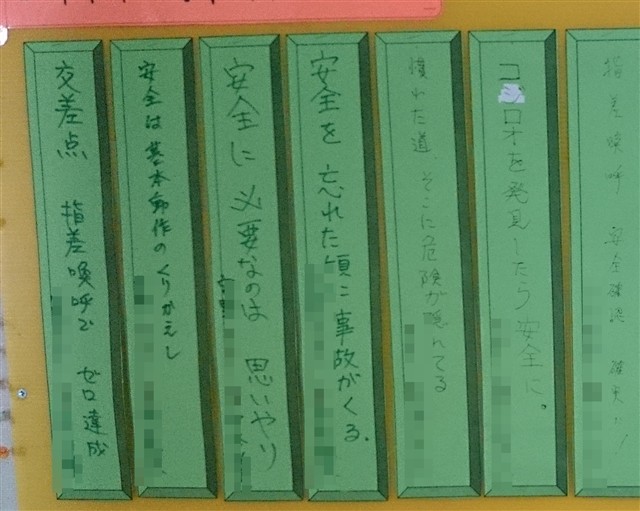 指差喚呼 安全確認
コジロオを発見したら安全に。
慣れた道、そこに危険が隠れてる
安全を忘れた頃に事故がくる。
安全に必要なのは 思いやり
安全は基本動作のくりかえし
交差点 指差喚呼で ゼロ達成